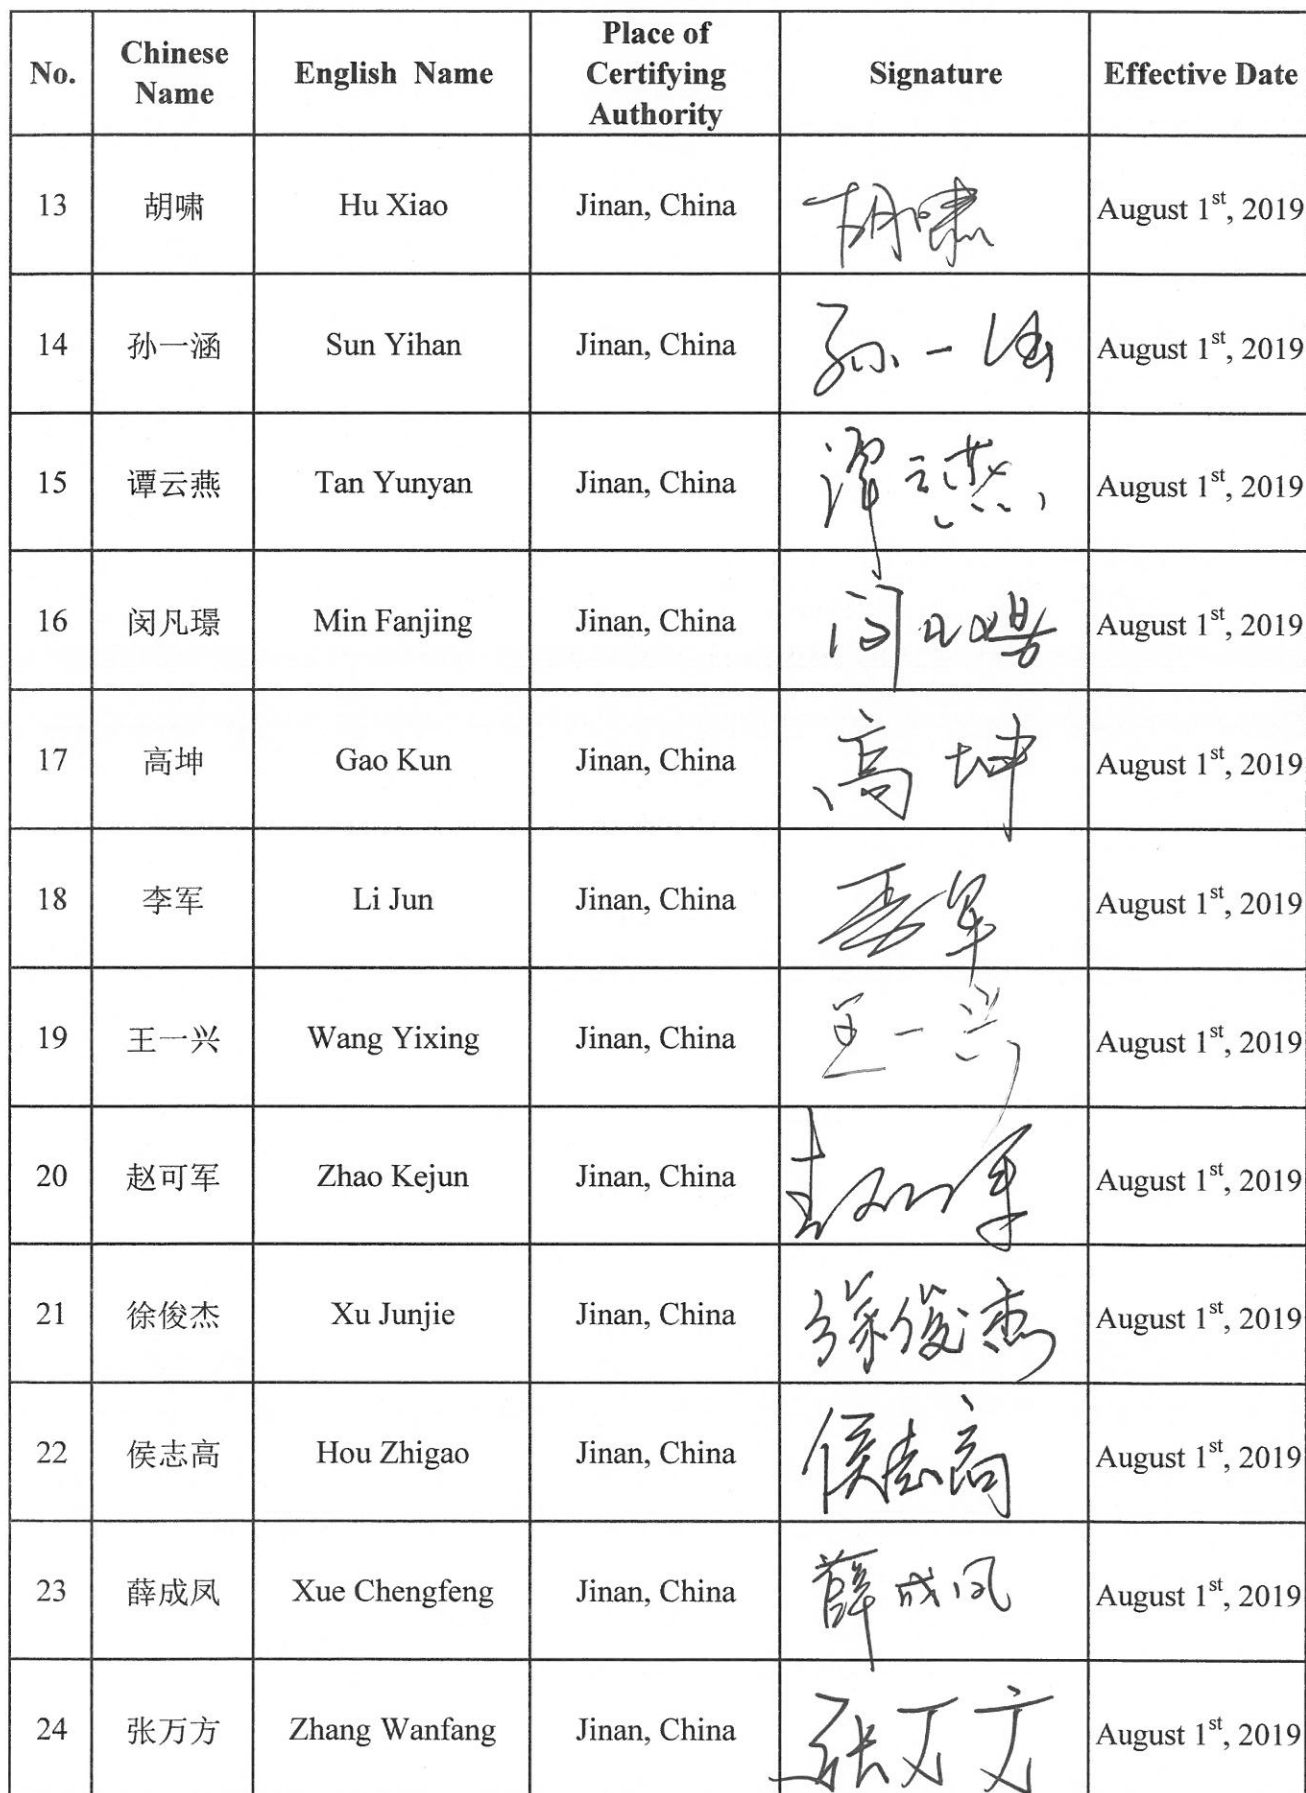 No. Chinese Name English Name Place of Certifying Authority Signature Effective Date
13 胡啸 Hu Xiao Jinan, China 胡啸 August 1st, 2019
14 孙一涵 Sun Yihan Jinan, China 孙一涵 August 1st, 2019
15 谭云燕 Tan Yunyan Jinan, China 谭云燕 August 1st, 2019
16 闵凡璟 Min Fanjing Jinan, China August 1st, 2019
17 高坤 Gao Kun Jinan, China 高坤 August 1st, 2019
18 李军 Li Jun Jinan, China 李军 August 1st, 2019
19 王一兴 Wang Yixing Jinan, China 王一兴 August 1st, 2019
20 赵可军 Zhao Kejun Jinan, China 赵可军 August 1st, 2019
21 徐俊杰 Xu Junjie Jinan, China 徐俊杰 August 1st, 2019
22 侯志高 Hou Zhigao Jinan, China 侯志高 August 1st, 2019
23 薛成凤 Xue Chengfeng Jinan, China 薛成凤 August 1st, 2019
24 张万方 Zhang Wanfang Jinan, China 张万方 August 1st, 2019